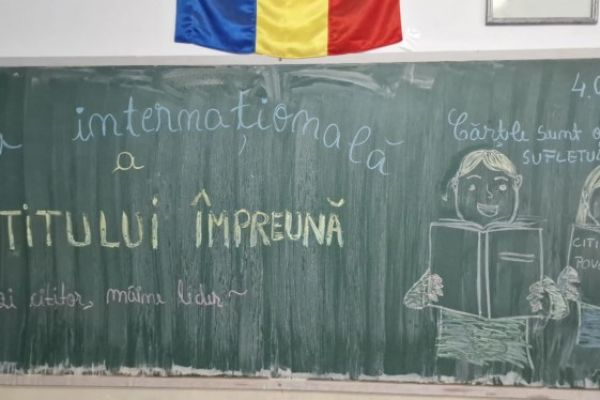 a internațională
4.0
a
Cărțile sunt o
SUFLETU
TITULUI ÎMPREUNĂ
CITI
POVE
cititor, mâine lider~